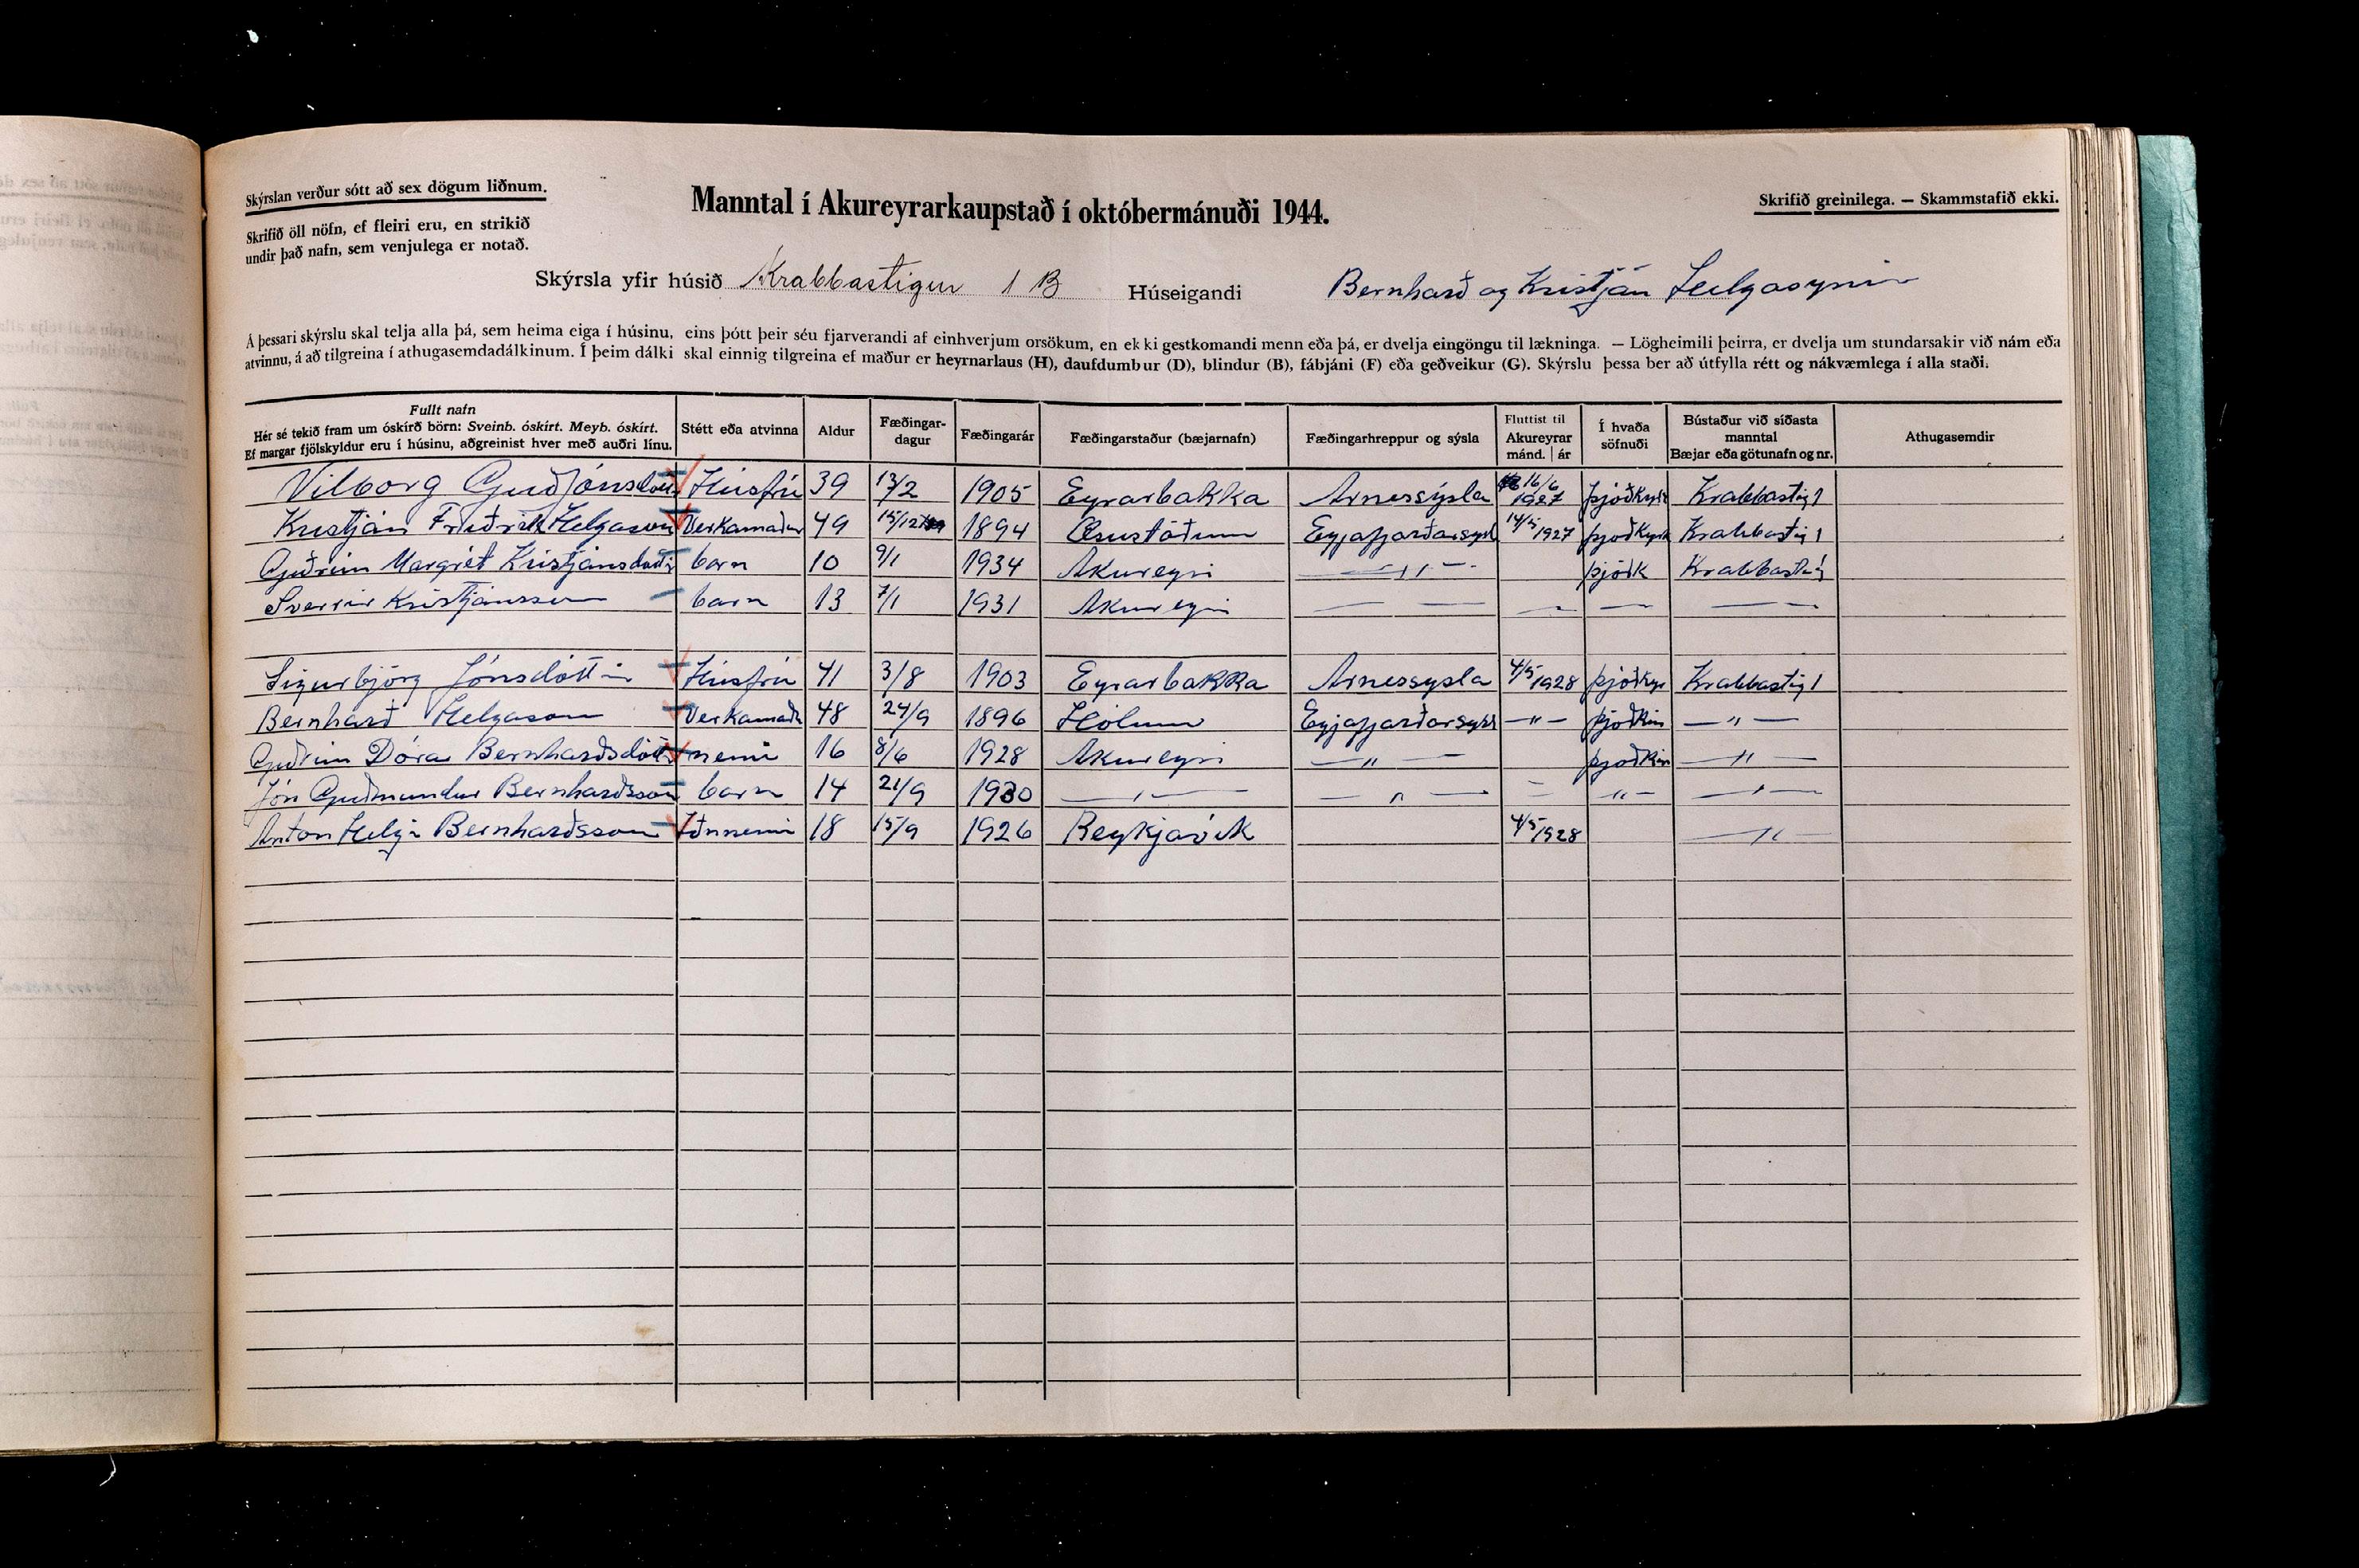 Skýrslan verður sótt að sex dögum liðnum.
Skrifið öll nöfn, ef fleiri eru, en strikið
undir það nafn, sem venjulega er notað.
Manntal í Akureyrarkaupstað í októbermánuði 1944.
Skrifið greinilega. — Skammstafið ekki.
Skýrsla yfir húsið Krabbastigur 1 B Húseigandi Bernharð og Kristján Helgasynir
Á þessari skýrslu skal telja alla þá, sem heima eiga í húsinu, eins þótt þeir séu fjarverandi af einhverjum orsökum, en ekki gestkomandi menn eða þá, er dvelja eingöngu til lækninga. — Lögheimili þeirra, er dvelja um stundarsakir við nám eða
atvinnu, á að tilgreina í athugasemdadálkinum. Í þeim dálki skal einnig tilgreina ef maður er heyrnarlaus (H), daufdumbur (D), blindur (B), fábjáni (F) eða geðveikur (G). Skýrslu þessa ber að útfylla rétt og nákvæmlega í alla staði.
Fullt nafn
Hér sé tekið fram um óskírð börn: Sveinb. óskírt. Meyb. óskírt.
Ef margar fjölskyldur eru í húsinu, aðgreinist hver með auðri línu.
Stétt eða atvinna
Aldur
Fæðingar-
dagur
Fæðingarár
Fæðingarstaður (bæjarnafn)
Fæðingarhreppur og sýsla
Fluttist til
Akureyrar
mánd. | ár
Í hvaða
söfnuði
Bústaður við síðasta
manntal
Bæjar eða götunafn og nr.
Athugasemdir
Vilborg Guðjónsdótt Húsfrú 39 13/2 1905 Eyrarbakka Arnessýsla 16/6 1927 þjóðkyrk Krabbastig 1
Kristján Friðrik Helgason Verkamaður 49 15/12 1894 Æsustöðum Eyjafjarðarsysl 14/5 1927 þjoðkyrk Krabbastig 1
Guðrún Margrét Kristjánsdóttir barn 10 9/1 1934 Akureyri — 〃 — þjóðk Krabbastig 1
Sverrir Kristjánsson barn 13 7/1 1931 Akureyri — — — — —
Sigurbjörg Jónsdóttir Húsfrú 41 3/8 1903 Eyrarbakka Arnessysla 4/5 1928 þjóðkyr Krabbastig 1
Bernharð Helgason Verkamaðr 48 24/9 1896 Hólum Eyjafjarðarsysl — 〃 — þjoðkir — 〃 —
Guðrún Dóra Bernharðsdótt nemi 16 8/6 1928 Akureyri — 〃 — þjoðkir — 〃 —
Jón Guðmundur Bernharðsson barn 14 21/9 1930 — 〃 — — 〃 — — 〃 — — 〃 —
Anton Helgi Bernharðsson Iðnnemi 18 15/9 1926 Reykjavik 4/5 1928 — 〃 —